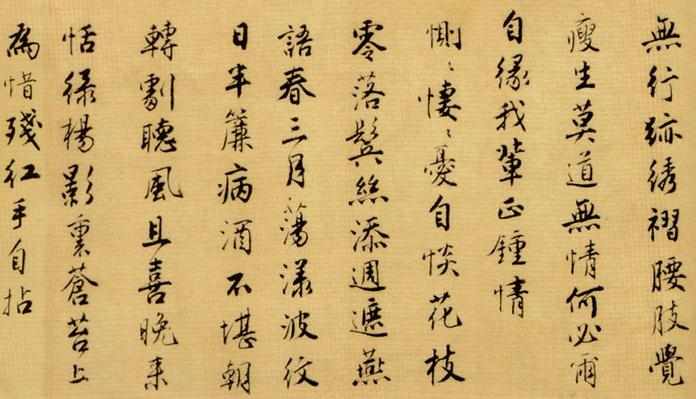 無行跡綉褶腰肢覺
瘦生莫道無情何必爾
自緣我輩正鍾情
惻〻悽〻憂自惔花枝
零落鬓絲添週遮燕
語春三月蕩漾波紋
日半簾病酒不堪朝
轉劇聽風且喜晚来
恬緑楊影裏蒼苔上
為惜殘紅手自拈